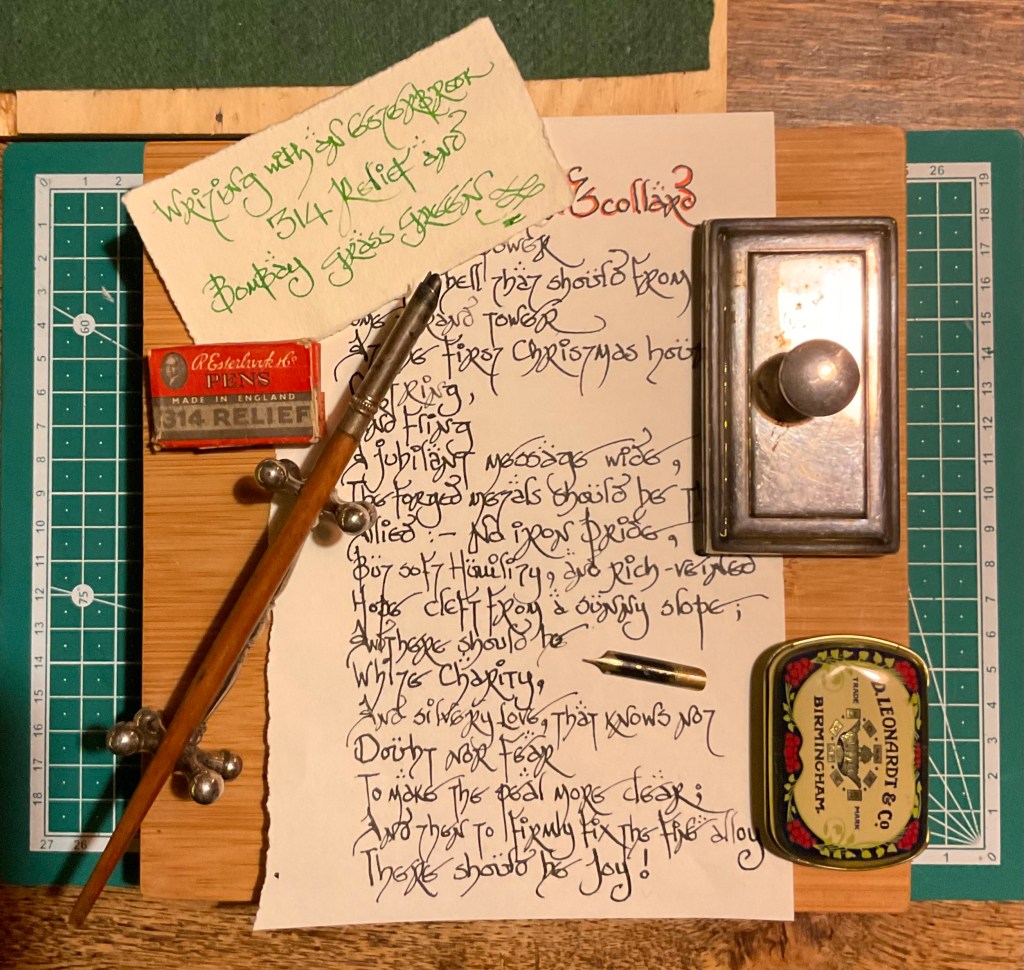 Writing with an Esterbrook
314 Relief and
Bombay Grass Green
Scollard
Tower
bell that should from
and Tower
first Christmas hour
ring,
And fling
A jubilant message wide,
The forged metals should be
allied :- No iron Pride,
But soft Humility, and rich-veined
Hope cleft from a sunny slope;
And there should be
White Charity,
And silvery Love, that knows not
Doubt nor Fear
To make the peal more clear;
And then to firmly fix the fine alloy
There should be Joy!
R. Esterbrook & Co
PENS
MADE IN ENGLAND
314 RELIEF
D. LEONARDT & Co
TRADE
MARK
BIRMINGHAM
0 1 2
3
4
5
6
7
8
9
10
11
12
13
14
15
16
17
18
27 26
60
75
26
19
18
17
16
15
14
13
12
11
10
9
6
5
4
3
2
1 0